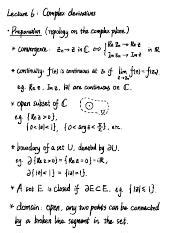 Lecture 6: Complex derivatives
• Preparation (topology on the complex plane)
* convergence: Zn → Z in ℂ ⟺ { Re Zn → Re Z
Im Zn → Im Z in ℝ
* continuity: f(z) is continuous at z₀ if lim f(z) = f(z₀)
z→z₀
e.g. Re z, Im z, |z| are continuous on ℂ.
* open subset of ℂ
e.g. {Re z > 0} U
{0 < |z| < 1}, {0 < arg z < π/2}, etc.
* boundary of a set U, denoted by ∂U.
e.g. ∂{Re z > 0} = {Re z = 0} = iℝ,
∂{|z| < 1} = {|z| = 1}.
* A set E is closed if ∂E ⊂ E. e.g. {|z| ≤ 1}.
* domain: open, any two points can be connected
by a broken line segment in the set.